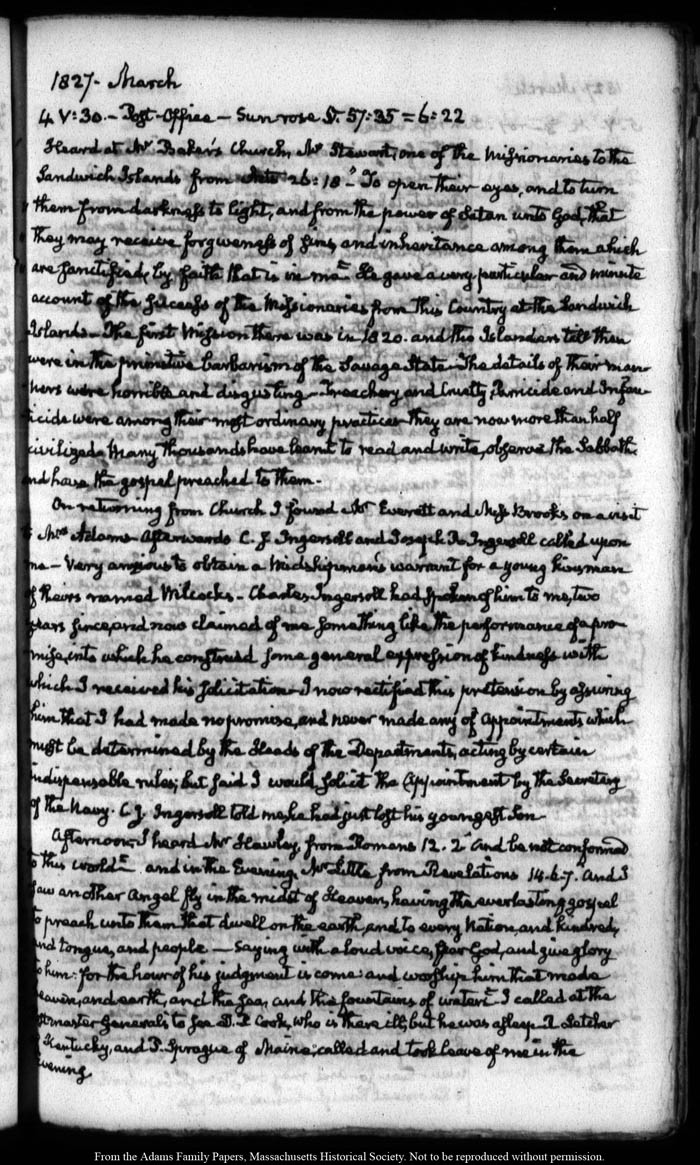 1827- March
4. V:30.- Post-Office - Sun rose S. 57:35 = 6:22
Heard at Mr Baker's Church, Mr Stewart, one of the Missionaries to the
Sandwich Islands from Acts 26:18 "To open their eyes, and to turn
them from darkness to light, and from the power of Satan unto God, that
they may receive forgiveness of sins, and inheritance among them which
are sanctified, by faith that is in me" He gave a very particular and minute
account of the success of the Missionaries from this Country at the Sandwich
Islands - The first Mission there was in 1820. and the Islanders till then
were in the primitive barbarism of the Savage State - The details of their man-
ners were horrible and disgusting - Treachery and Cruelty, Parricide and Infan-
icide were among their most ordinary practices they are now more than half
civilized. Many thousands have learnt to read and write, observe the Sabbath.
nd have the gospel preached to them -
On returning from Church I found Mr Everett and Miss Brooks on a visit
Mrs Adams - Afterwards C. J. Ingersoll and Joseph R. Ingersoll called upon
me - Very anxious to obtain a Midshipman's warrant for a young kinsman
of theirs named Wilcocks - Charles Ingersoll had spoken of him to me, two
years since, and now claimed of me something like the performance of a pro-
mise, into which he construed some general expression of kindness with
which I received his solicitation - I now rectified this pretension by assuring
him that I had made no promise, and never made any of Appointments which
must be determined by the Heads of the Departments, acting by certain
indispensable rules; but said I would solicit the Appointment by the Secretary
of the Navy. C. J. Ingersoll told me, he had just lost his youngest Son -
Afternoon, I heard Mr Hawley, from Romans 12. 2 "And be not conformed
to this world" - and in the Evening, Mr Little from Revelations 14. 6.7. "And I
saw another Angel fly in the midst of Heaven, having the everlasting gospel
to preach unto them that dwell on the earth, and to every Nation, and kindred,
and tongue, and people - Saying with a loud voice, fear God, and give glory
to him: for the hour of his judgment is come: and worship him that made
heaven, and earth, and the sea, and the fountains of waters" - I called at the
ostmaster General's to see D. P. Cook, who is there ill, but he was asleep. R. Letcher
f Kentucky, and P. Sprague of Maine called and took leave of me in the
Evening.
From the Adams Family Papers, Massachusetts Historical Society. Not to be reproduced without permission.